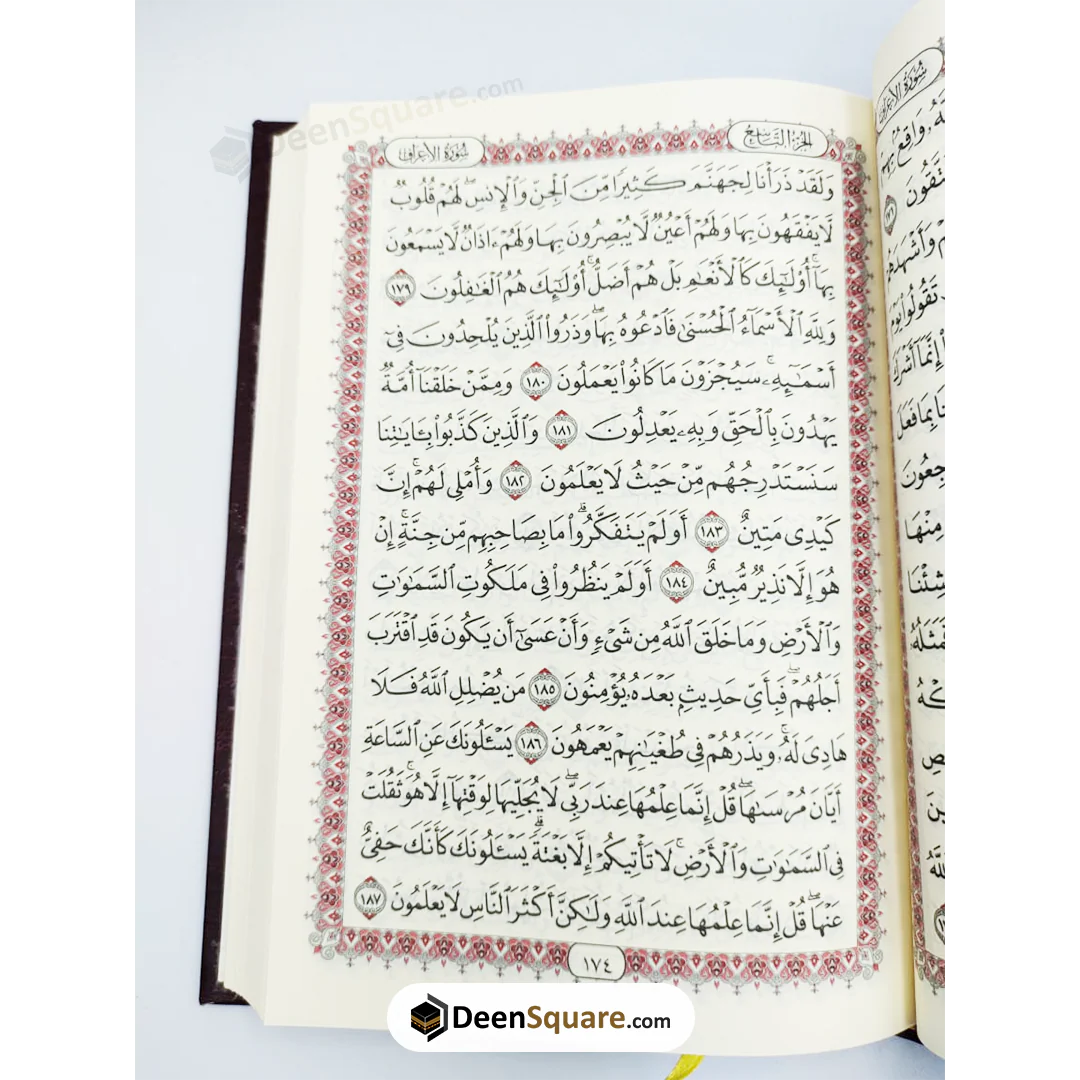 DeenSquare.com
سُورَةُ الأَعْرَافِ
الجُزْءُ التَّاسِعُ
وَلَقَدْ ذَرَأْنَا لِجَهَنَّمَ كَثِيرًا مِّنَ ٱلْجِنِّ وَٱلْإِنسِ ۖ لَهُمْ قُلُوبٌ
لَّا يَفْقَهُونَ بِهَا وَلَهُمْ أَعْيُنٌ لَّا يُبْصِرُونَ بِهَا وَلَهُمْ ءَاذَانٌ لَّا يَسْمَعُونَ
بِهَآ ۚ أُو۟لَـٰٓئِكَ كَٱلْأَنْعَـٰمِ بَلْ هُمْ أَضَلُّ ۚ أُو۟لَـٰٓئِكَ هُمُ ٱلْغَـٰفِلُونَ ١٧٩
وَلِلَّهِ ٱلْأَسْمَآءُ ٱلْحُسْنَىٰ فَٱدْعُوهُ بِهَا ۖ وَذَرُوا۟ ٱلَّذِينَ يُلْحِدُونَ فِىٓ
أَسْمَـٰٓئِهِۦ ۚ سَيُجْزَوْنَ مَا كَانُوا۟ يَعْمَلُونَ ١٨٠ وَمِمَّنْ خَلَقْنَآ أُمَّةٌ
يَهْدُونَ بِٱلْحَقِّ وَبِهِۦ يَعْدِلُونَ ١٨١ وَٱلَّذِينَ كَذَّبُوا۟ بِـَٔايَـٰتِنَا
سَنَسْتَدْرِجُهُم مِّنْ حَيْثُ لَا يَعْلَمُونَ ١٨٢ وَأُمْلِى لَهُمْ ۚ إِنَّ
كَيْدِى مَتِينٌ ١٨٣ أَوَلَمْ يَتَفَكَّرُوا۟ ۗ مَا بِصَاحِبِهِم مِّن جِنَّةٍ ۚ إِنْ
هُوَ إِلَّا نَذِيرٌ مُّبِينٌ ١٨٤ أَوَلَمْ يَنظُرُوا۟ فِى مَلَكُوتِ ٱلسَّمَـٰوَٰتِ
وَٱلْأَرْضِ وَمَا خَلَقَ ٱللَّهُ مِن شَىْءٍ وَأَنْ عَسَىٰٓ أَن يَكُونَ قَدِ ٱقْتَرَبَ
أَجَلُهُمْ ۖ فَبِأَىِّ حَدِيثٍۭ بَعْدَهُۥ يُؤْمِنُونَ ١٨٥ مَن يُضْلِلِ ٱللَّهُ فَلَا
هَادِىَ لَهُۥ ۚ وَيَذَرُهُمْ فِى طُغْيَـٰنِهِمْ يَعْمَهُونَ ١٨٦ يَسْـَٔلُونَكَ عَنِ ٱلسَّاعَةِ
أَيَّانَ مُرْسَىٰهَا ۖ قُلْ إِنَّمَا عِلْمُهَا عِندَ رَبِّى ۖ لَا يُجَلِّيهَا لِوَقْتِهَآ إِلَّا هُوَ ۚ ثَقُلَتْ
فِى ٱلسَّمَـٰوَٰتِ وَٱلْأَرْضِ ۚ لَا تَأْتِيكُمْ إِلَّا بَغْتَةً ۗ يَسْـَٔلُونَكَ كَأَنَّكَ حَفِىٌّ
عَنْهَا ۖ قُلْ إِنَّمَا عِلْمُهَا عِندَ ٱللَّهِ وَلَـٰكِنَّ أَكْثَرَ ٱلنَّاسِ لَا يَعْلَمُونَ ١٨٧
١٧٤
سُورَةُ الأَعْرَافِ
وَاقِعٌ بِهِمْ
١٧١
وَأَشْهَدَهُمْ
تَقُولُوا۟ يَوْمَ
إِنَّمَآ أَشْرَكَ
بِمَا فَعَلَ
مِنْهَا
شِئْنَا
فَمَثَلُهُۥ
DeenSquare.com